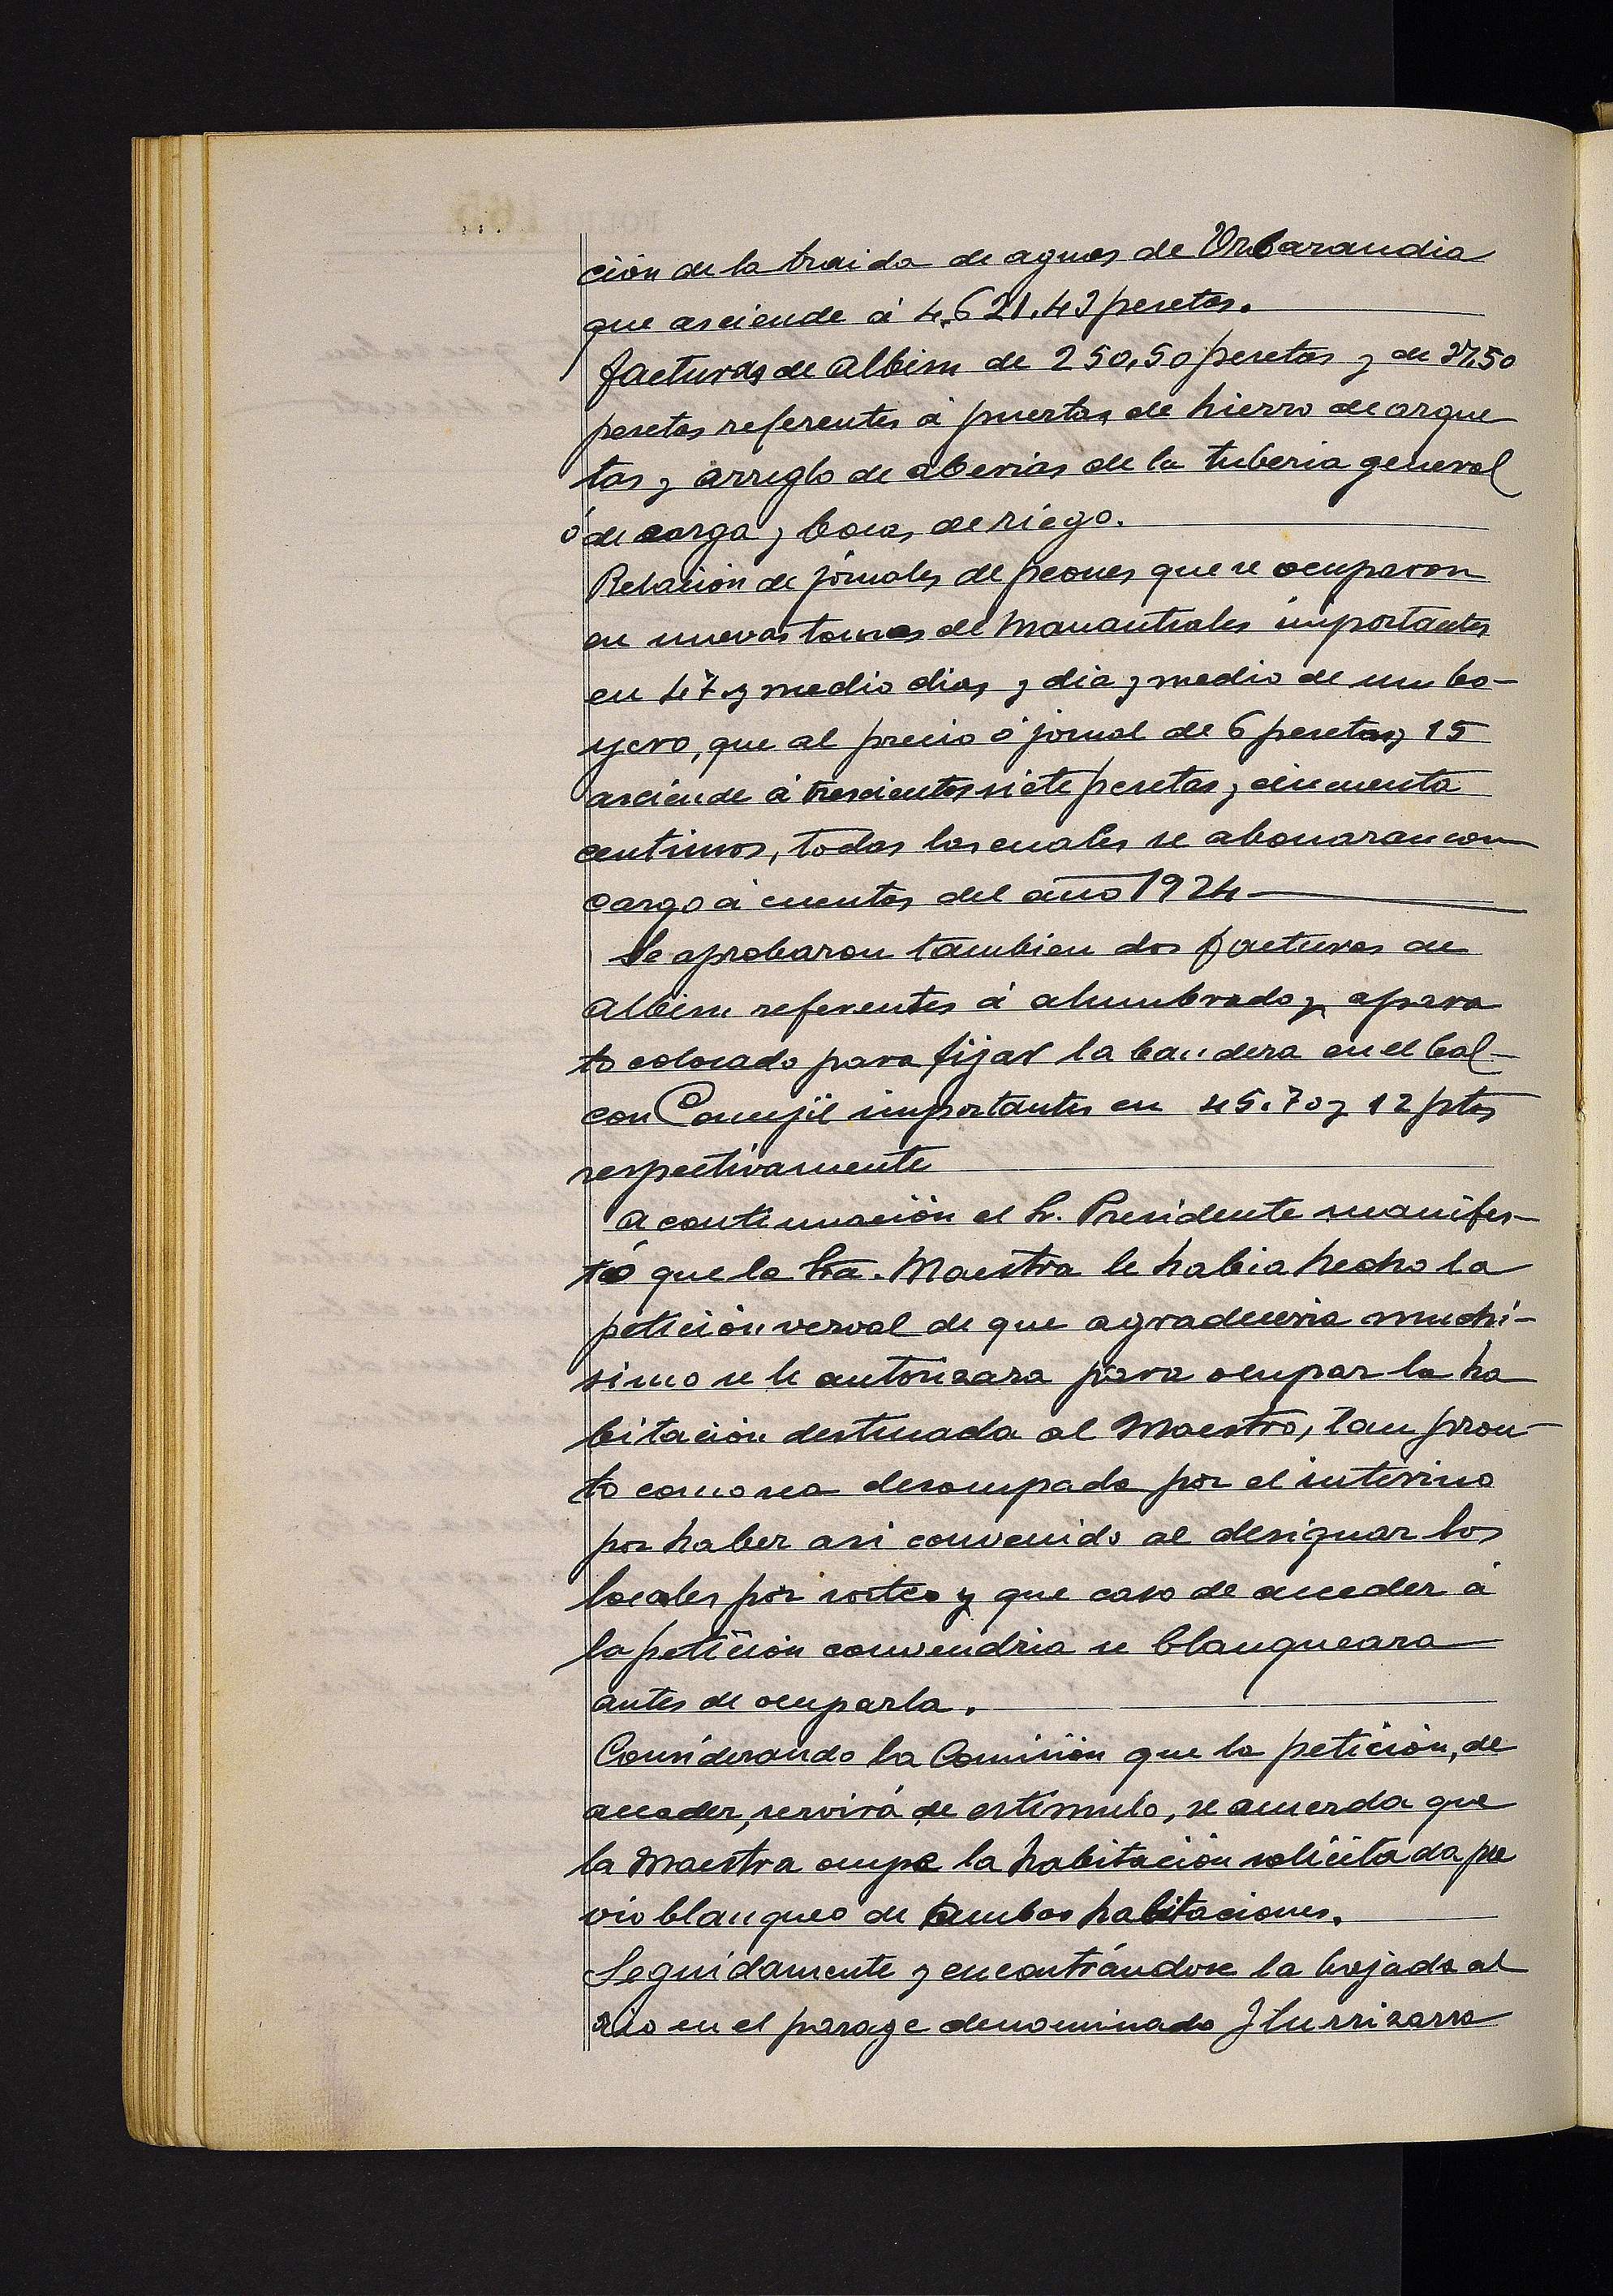 ción de la traida de aguas de Urbarandia
que asciende á 4.621.49 pesetas.
facturas de Albim de 250,50 pesetas y de 37,50
pesetas referentes á puertas de hierro de arque
tas y arreglo de aberias de la tuberia general
ó de carga y bocas de riego.
Relación de jornales de peones que se ocuparon
en nuevas tomas de Manantiales importantes
en 47 y medio dias y dia y medio de un bo-
yero, que al precio ó jornal de 6 pesetas y 15
asciende á trescientos siete pesetas y cincuenta
centimos, todas las cuales se abonaran con
cargo á cuentas del año 1924
Se aprobaron tambien dos facturas de
Albim referentes á alumbrado y apara
to colocado para fijar la bandera en el bal-
con Concejil importantes en 45.70 y 12 ptas
respectivamente
A continuación el Sr. Presidente manifes-
tó que la Sra. Maestra le habia hecho la
petición verval de que agradeceria muchi-
simo se le autorizara para ocupar la ha
bitación destinada al Maestro, tan pron-
to como sea desocupada por el interino
por haber asi convenido al designar los
locales por sorteo y que caso de acceder á
la petición convendria se blanqueara
antes de ocuparla.
Considerando la Comisión que la petición, de
acceder, servirá de estímulo, se acuerda que
la Maestra ocupe la habitación solicitada pre
vio blanqueo de ambas habitaciones.
Seguidamente y encontrándose la bajada al
rio en el parage denominado Iturrizarra